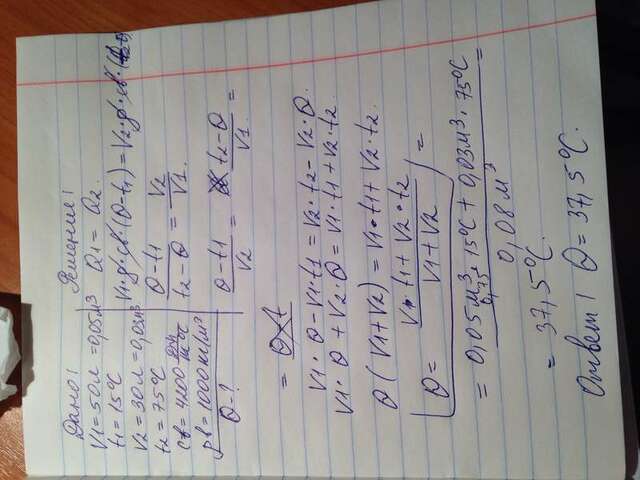 Дано:
V1 = 50л = 0,05м3
t1 = 15°C
V2 = 30л = 0,03м3
t2 = 75°C
cв = 4200
ρв = 1000 кг/м3
Θ - ?
Решение:
Q1 = Q2.
V1·ρ·cв·(Θ-t1) = V2·ρ·cв·
Θ-t1 / t2-Θ = V2 / V1.
Θ-t1 / V2 = t2-Θ / V1. =
=
V1·Θ - V1·t1 = V2·t2 - V2·Θ
V1·Θ + V2·Θ = V1·t1 + V2·t2.
Θ (V1+V2) = V1·t1 + V2·t2.
Θ = V1·t1 + V2·t2 / V1+V2 =
= 0,05м3·15°C + 0,03м3·75°C / 0,08 м3 =
= 37,5°C.
Ответ: Θ = 37,5°C.